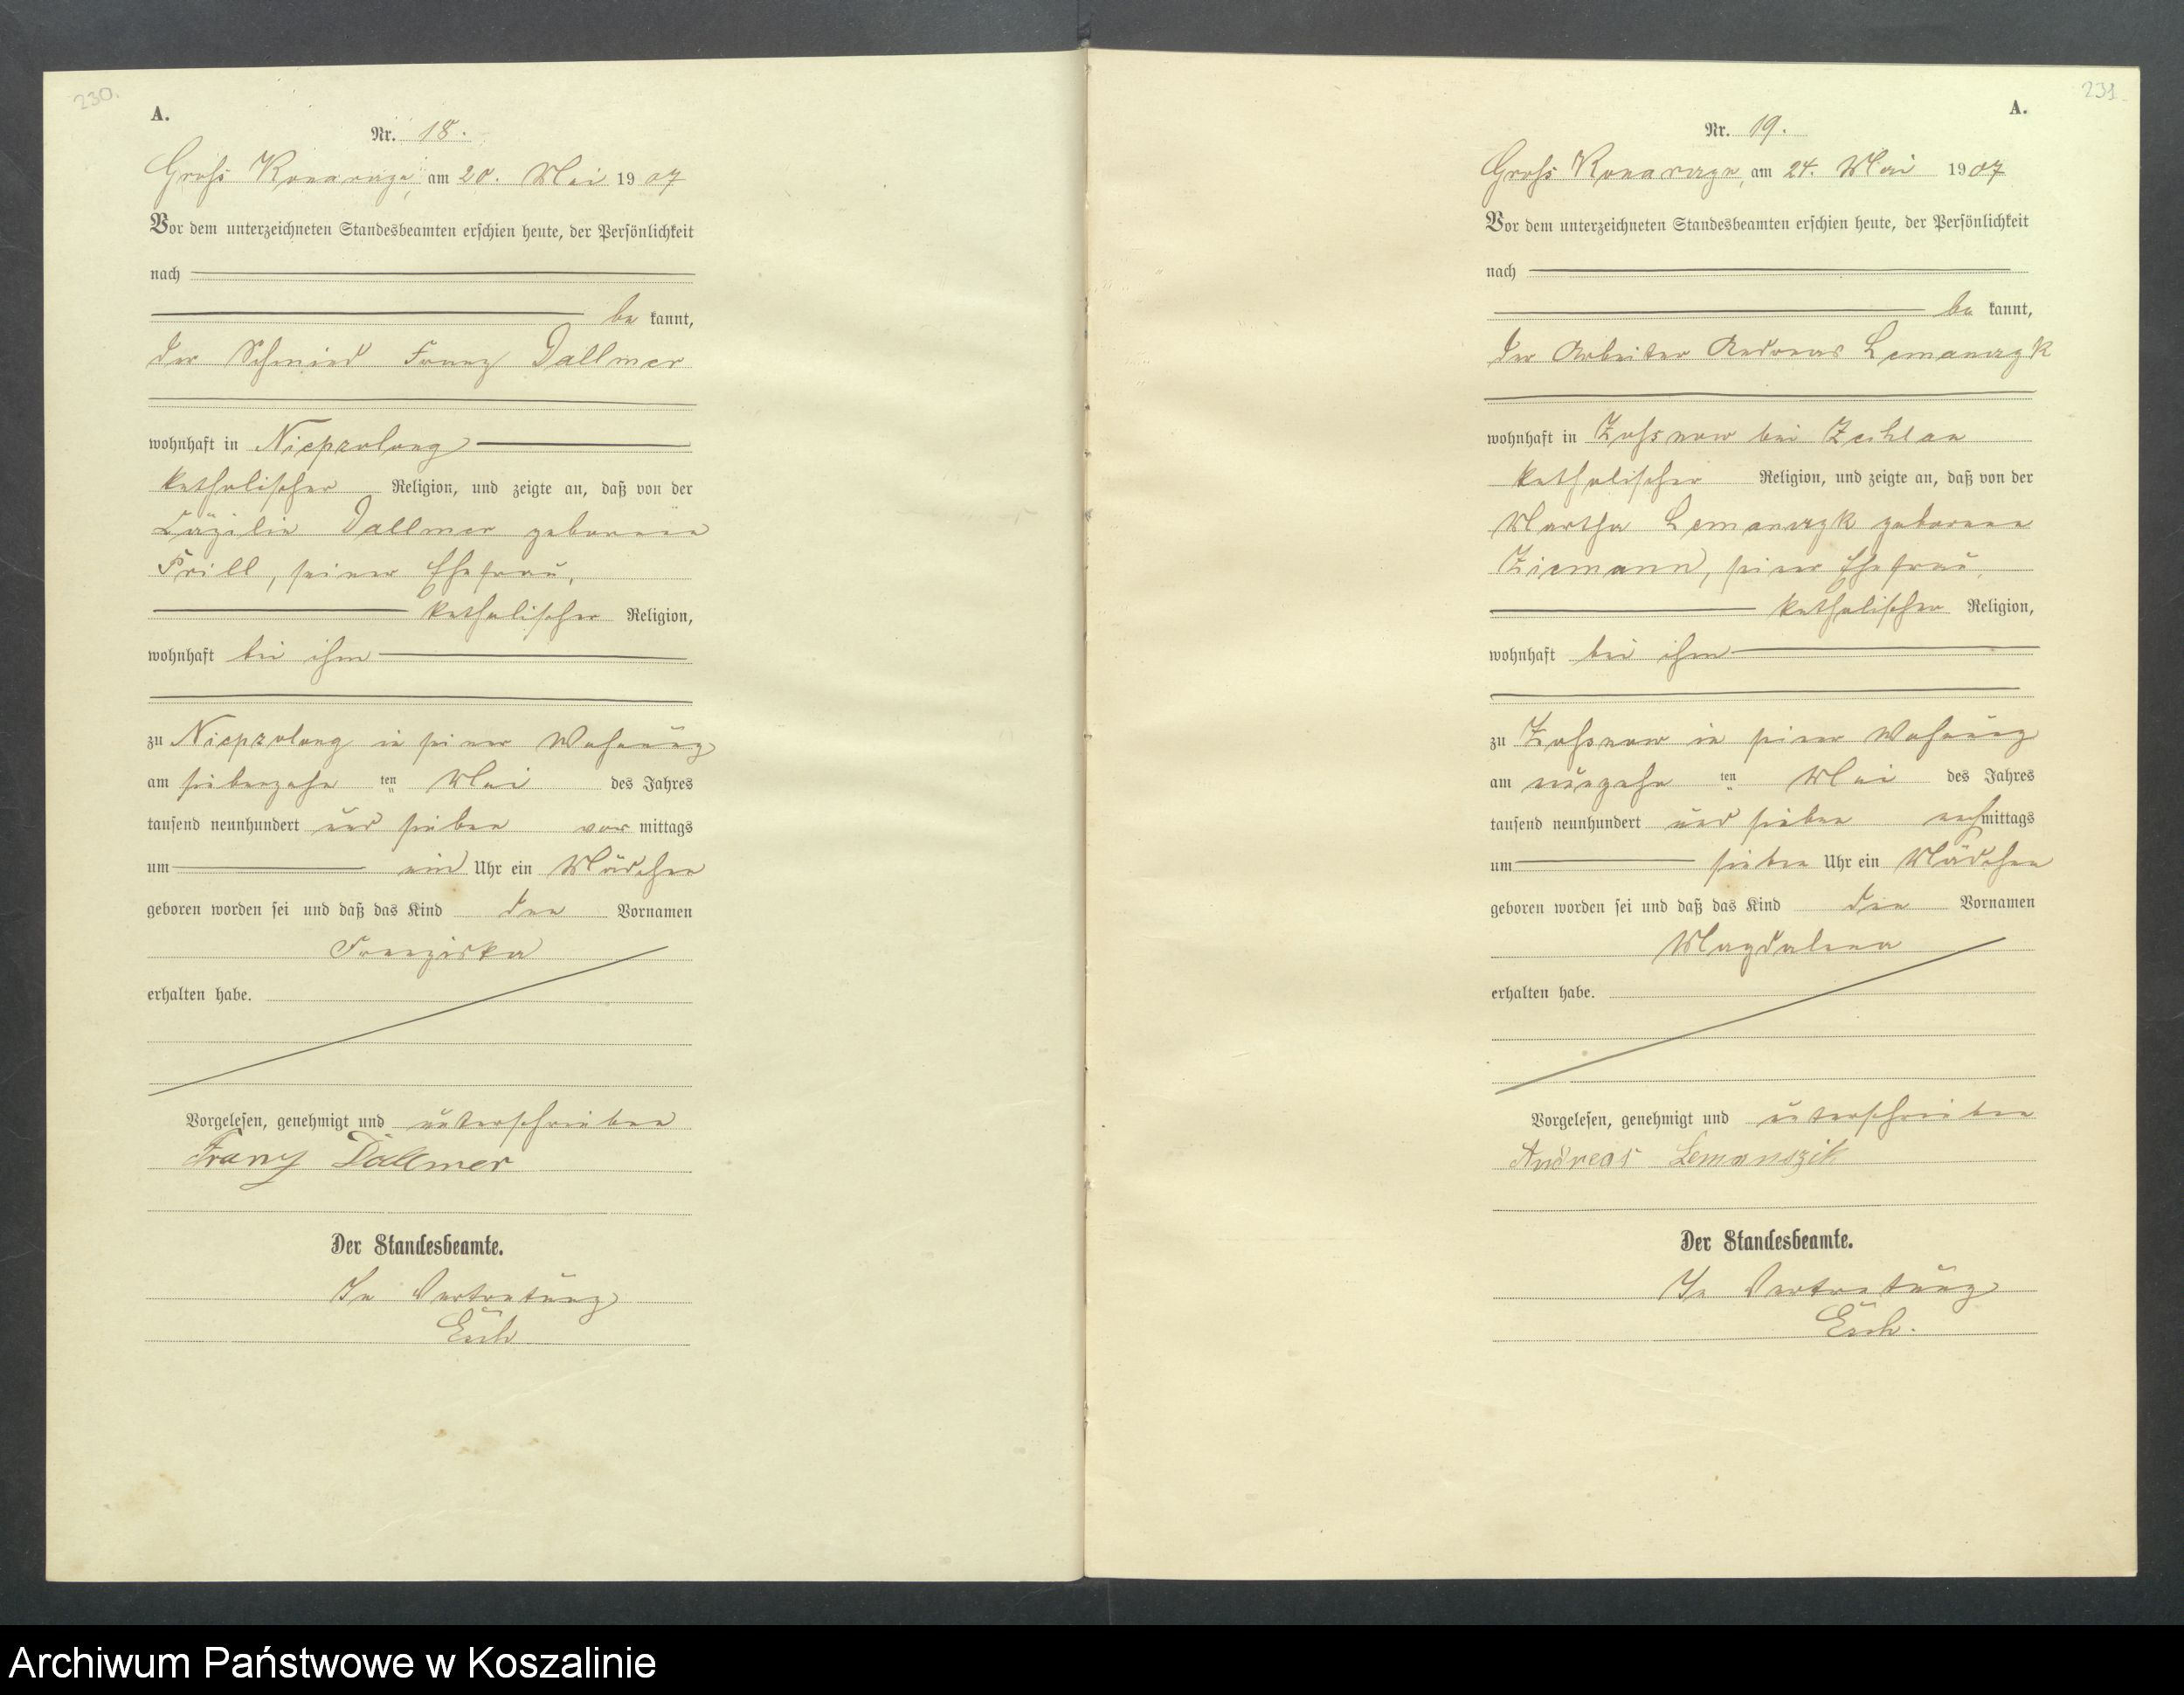 230.
A.
Nr. 18.
Groß Konarczyn, am 20. Mai 1907
Vor dem unterzeichneten Standesbeamten erschien heute, der Persönlichkeit
nach
be kannt,
der Schmied Franz Dallmer
wohnhaft in Nieprzolong
katholischer Religion, und zeigte an, daß von der
Cäzilie Dallmer geborene
Prill, seiner Ehefrau,
katholischer Religion,
wohnhaft bei ihm
zu Nieprzolong in seiner Wohnung
am siebenzehn ten Mai des Jahres
tausend neunhundert und sieben vor mittags
um ein Uhr ein Mädchen
geboren worden sei und daß das Kind den Vornamen
Franziska
erhalten habe.
Vorgelesen, genehmigt und unterschrieben
Franz Dallmer
Der Standesbeamte.
In Vertretung
231
A.
Nr. 19.
Groß Konarczyn, am 24. Mai 1907
Vor dem unterzeichneten Standesbeamten erschien heute, der Persönlichkeit
nach
be kannt,
der Arbeiter Andreas Lemanczyk
wohnhaft in Zoßnow bei Zechlau
katholischer Religion, und zeigte an, daß von der
Martha Lemanczyk geborene
Ziemann, seiner Ehefrau,
katholischer Religion,
wohnhaft bei ihm
zu Zoßnow in seiner Wohnung
am neunzehn ten Mai des Jahres
tausend neunhundert und sieben nachmittags
um sieben Uhr ein Mädchen
geboren worden sei und daß das Kind den Vornamen
Magdalena
erhalten habe.
Vorgelesen, genehmigt und unterschrieben
Andreas Lemanszik
Der Standesbeamte.
In Vertretung
Archiwum Państwowe w Koszalinie